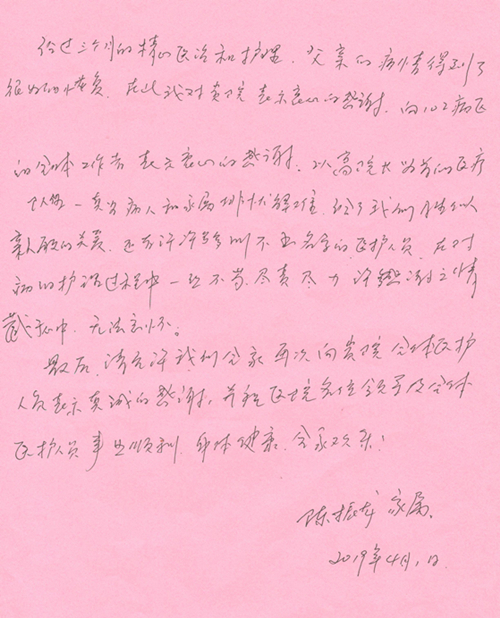 经过三个月的精心医治和护理，父亲的病情得到了
很好的恢复。在此我对贵院表示衷心的感谢，向102病区
的全体工作者表示衷心的感谢，以高院长为首的医疗
一真为病人和家属排忧解难，给了我们胜似
亲人的关爱，还有许许多多叫不上名字的医护人员，在对
病的护理过程中一丝不苟，尽责尽力，许多感谢之情
藏于心中，无法言怀。
最后，请允许我们全家再次向贵院全体医护
人员表示真诚的感谢，并祝医院各位领导及全体
医护人员事业顺利，身体健康，全家欢乐！
陈振龙家属
2019年4月1日